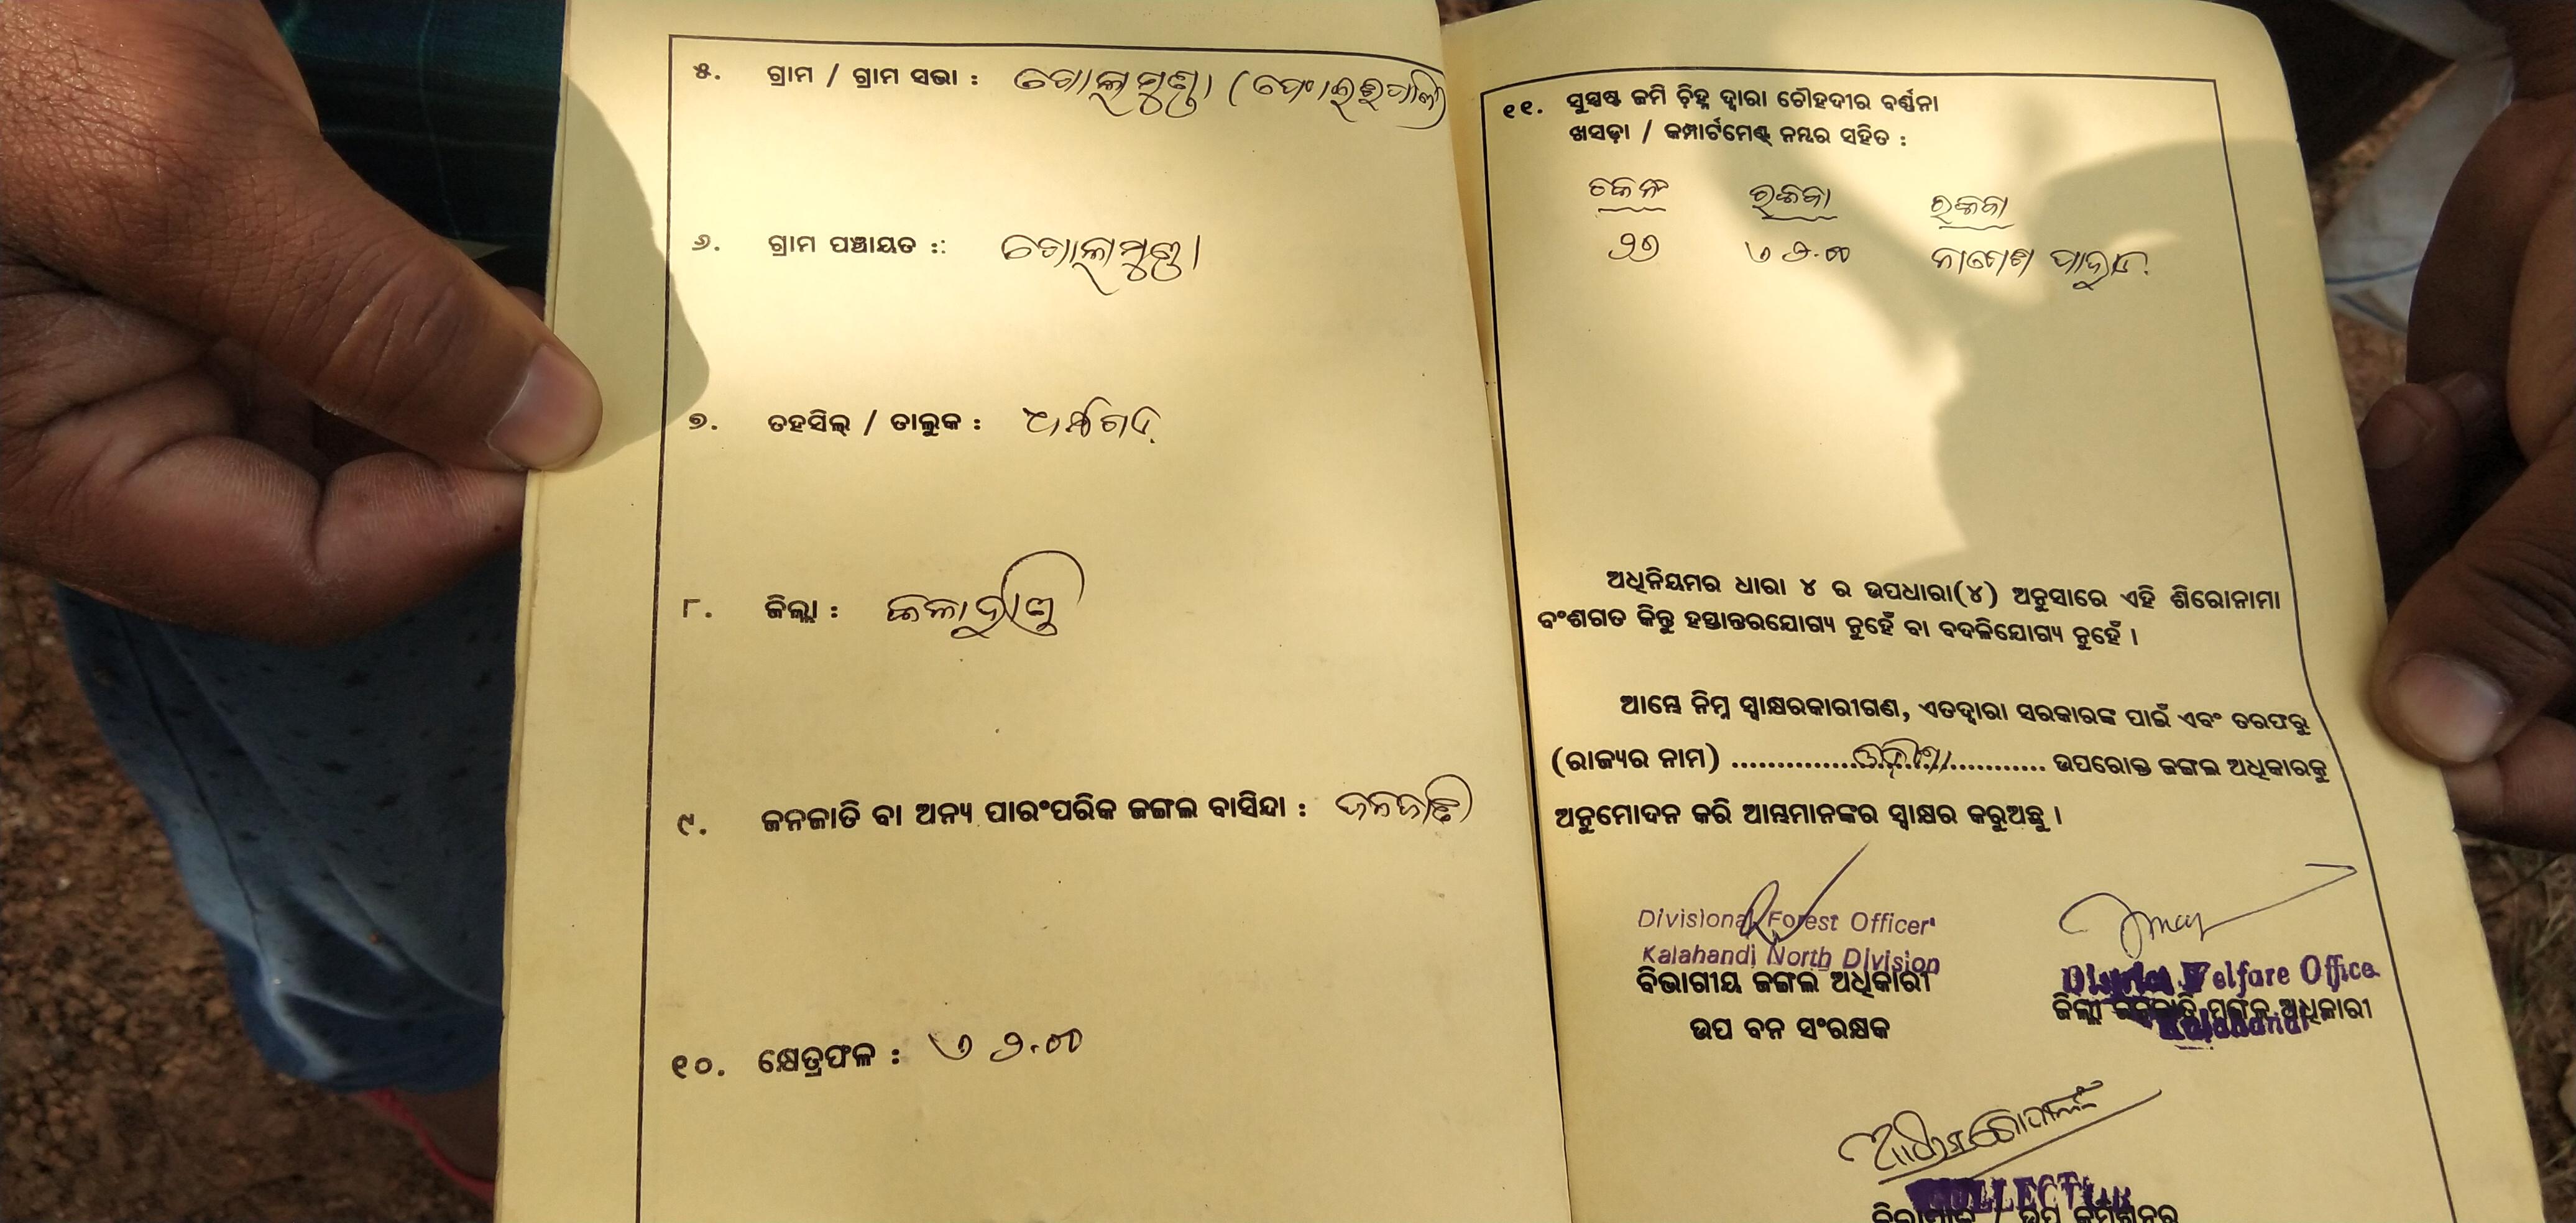 ୫. ଗ୍ରାମ / ଗ୍ରାମ ସଭା : ଗୋଲମୁଣ୍ଡା
୬. ଗ୍ରାମ ପଞ୍ଚାୟତ :: ଗୋଲାମୁଣ୍ଡା
୭. ତହସିଲ୍ / ତାଲୁକ :
୮. ଜିଲ୍ଲା : କଳାହାଣ୍ଡି
୯. ଜନଜାତି ବା ଅନ୍ୟ ପାରଂପରିକ ଜଙ୍ଗଲ ବାସିନ୍ଦା : ଜନଜାତି
୧୦. କ୍ଷେତ୍ରଫଳ :
୧୧. ସୁସ୍ପଷ୍ଟ ଜମି ଚ଼ିହ୍ନ ଦ୍ଵାରା ଚୌହଦୀର ବର୍ଣ୍ଣନା
ଖସଡ଼ା / କମ୍ପାର୍ଟମେଣ୍ଟ୍ ନମ୍ବର ସହିତ :
ରକବା ରକବା
ଅଧିନିୟମର ଧାରା ୪ ର ଉପଧାରା(୪) ଅନୁସାରେ ଏହି ଶିରୋନାମା
ବଂଶଗତ କିନ୍ତୁ ହସ୍ତାନ୍ତରଯୋଗ୍ୟ ନୁହେଁ ବା ବଦଳିଯୋଗ୍ୟ ନୁହେଁ ।
ଆମ୍ଭେ ନିମ୍ନ ସ୍ଵାକ୍ଷରକାରୀଗଣ, ଏତଦ୍ଵାରା ସରକାରଙ୍କ ପାଇଁ ଏବଂ ତରଫରୁ
(ରାଜ୍ୟର ନାମ) ..............ଓଡ଼ିଶା............ ଉପରୋକ୍ତ ଜଙ୍ଗଲ ଅଧିକାରକୁ
ଅନୁମୋଦନ କରି ଆମ୍ଭମାନଙ୍କର ସ୍ଵାକ୍ଷର କରୁଅଛୁ ।
Divisional Forest Officer
Kalahandi North Division
ବିଭାଗୀୟ ଜଙ୍ଗଲ ଅଧିକାରୀ
ଉପ ବନ ସଂରକ୍ଷକ
District Welfare Office
ଜିଲ୍ଲା ଜନଜାତି ମଙ୍ଗଳ ଅଧିକାରୀ
Kalahandi
COLLECTOR